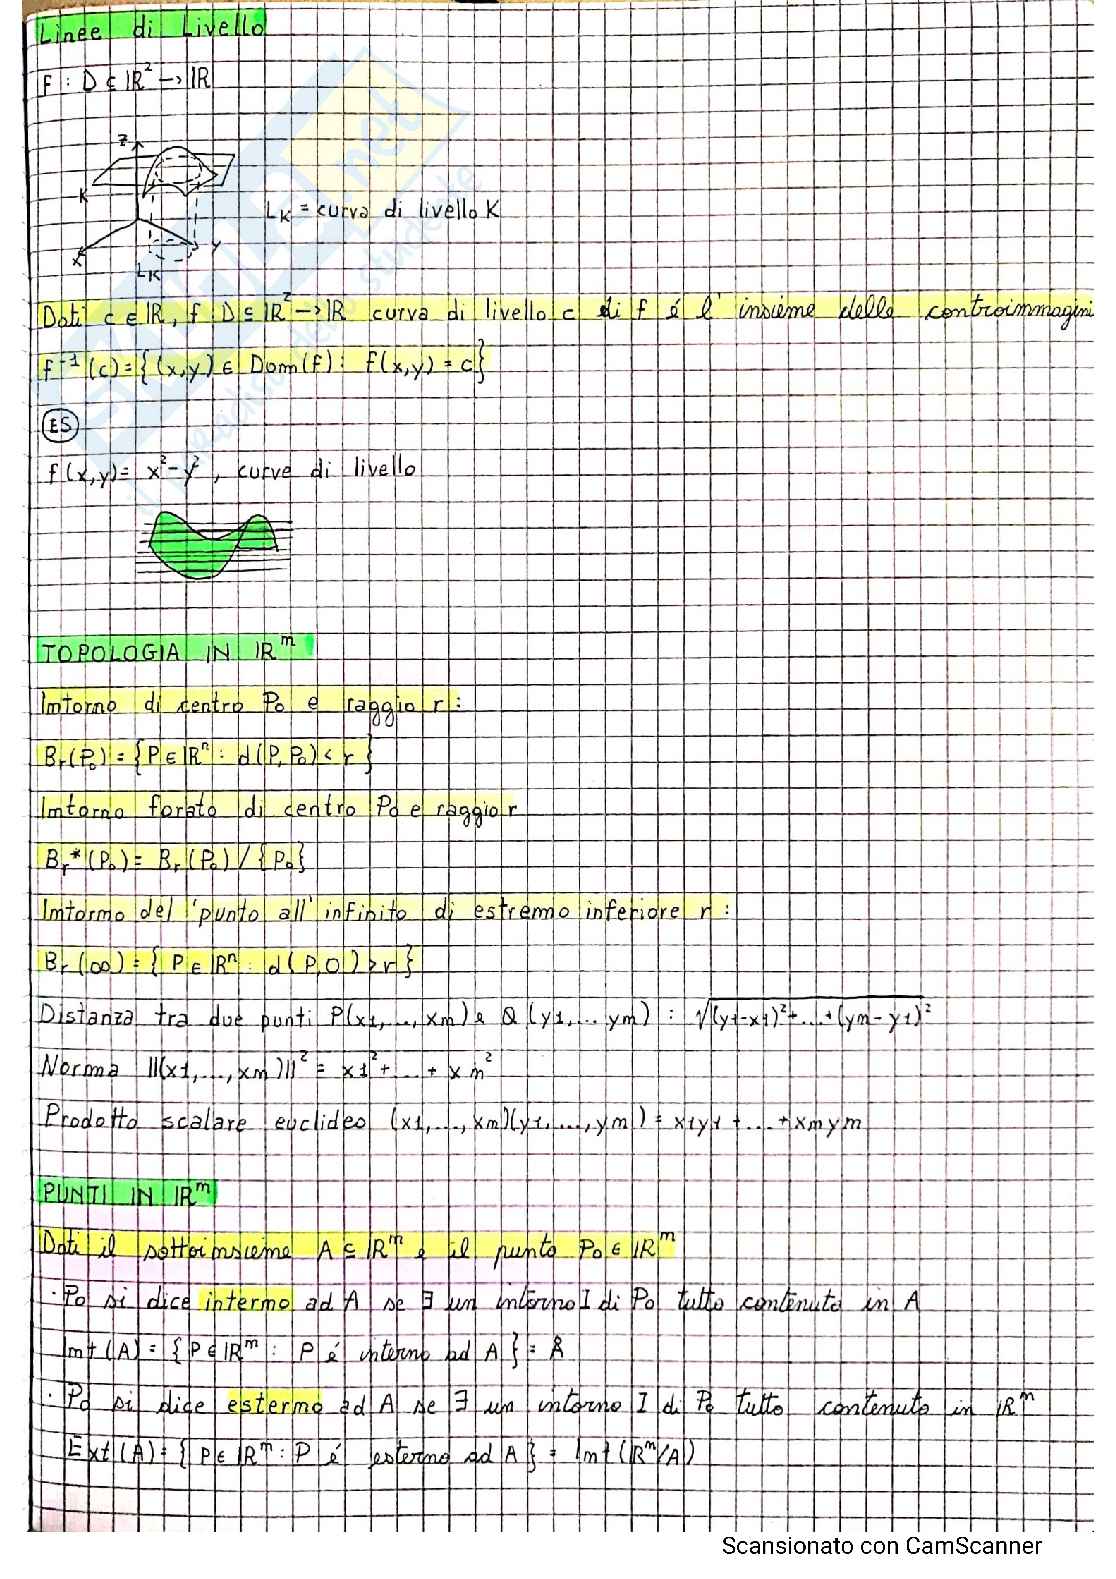 Linee di Livello
F : D ⊂ IR² → IR
Z
K
LK = curva di livello K
Y
X
LK
Dati c ∈ IR, f D ⊆ IR² → IR curva di livello c di f é l' insieme delle controimmagini
f⁻¹(c) = { (x,y) ∈ Dom(f) : f(x,y) = c }
ES
f(x,y) = x² - y² , curve di livello
TOPOLOGIA IN IR^m
Imtorno di centro Po e raggio r :
Br(Po) = { P ∈ IRⁿ : d(P, Po) < r }
Imtorno forato di centro Po e raggio r
Br*(Po) = Br(Po) / {Po}
Imtormo del punto all' infinito di estremo inferiore r :
Br(∞) = { P ∈ IRⁿ : d(P,O) > r }
Distanza tra due punti P(x1,...,xm) e Q(y1,...ym) : √(y1-x1)²+...+(ym-y1)²
Norma ||(x1,...,xm)||² = x1² + ... + xm²
Prodotto scalare euclideo (x1,...,xm)(y1,...,ym) = x1y1 + ... + xmym
PUNTI IN IR^m
Dati il sottoinsieme A ⊆ IR^m e il punto Po ∈ IR^m
· Po si dice intermo ad A se ∃ un intorno I di Po tutto contenuto in A
Imt(A) = { P ∈ IR^m : P é interno ad A } = Å
· Po si dice estermo ad A se ∃ un intorno I di Po tutto contenuto in IR^m
Ext(A) = { P ∈ IR^m : P é esterno ad A } = Imt(IR^m/A)
Scansionato con CamScanner